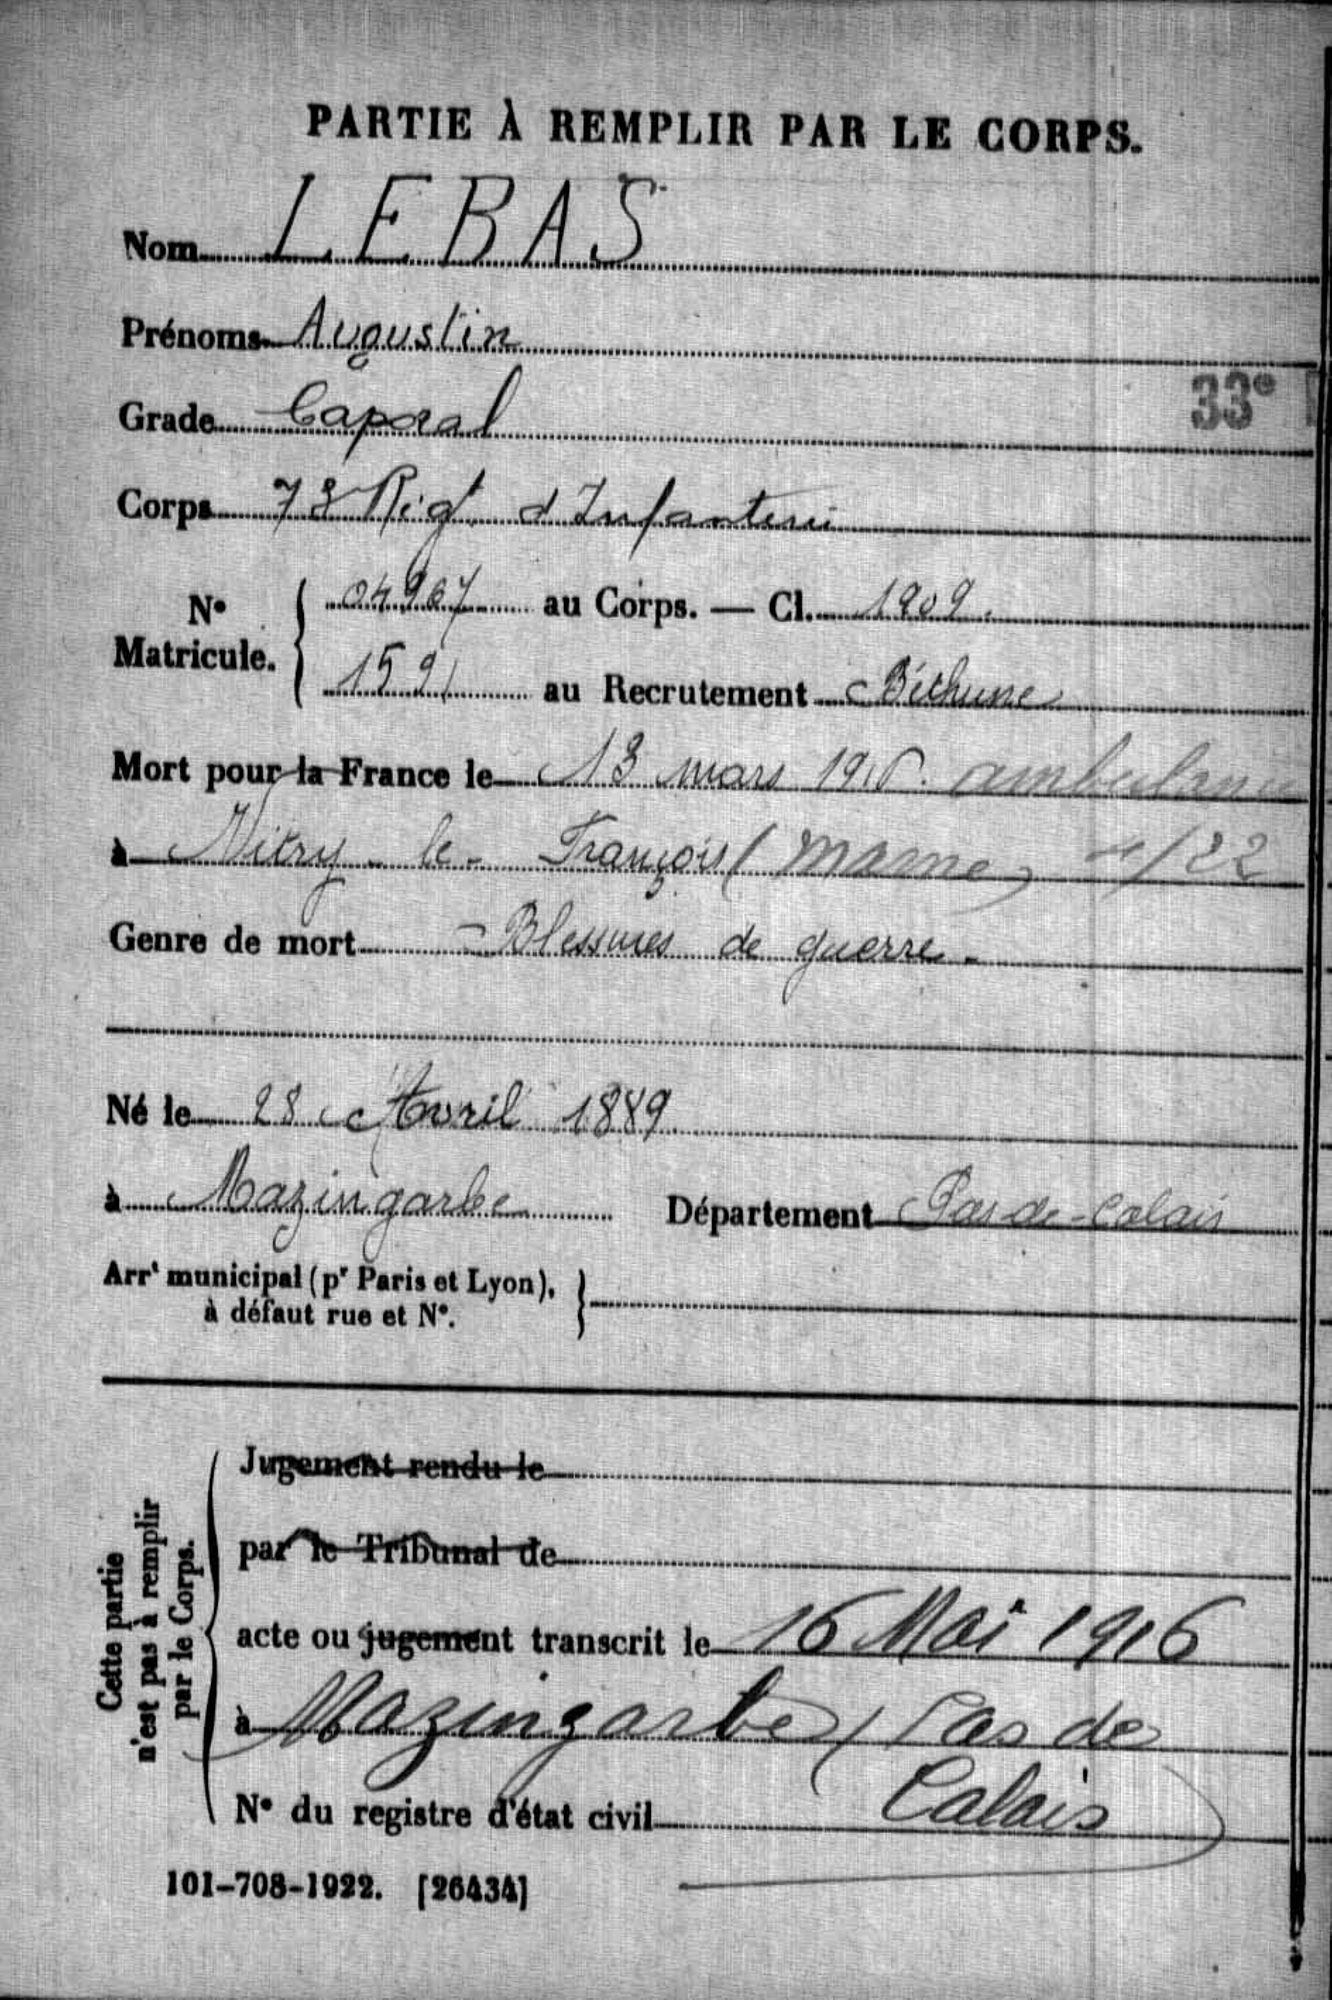 PARTIE À REMPLIR PAR LE CORPS.
Nom LEBAS
Prénoms Augustin
33e
Grade Caporal
Corps 73 Rigt d'Infanterie
No Matricule. 04967 au Corps. — Cl. 1909.
1591 au Recrutement Béthune
Mort pour la France le 13 mars ambulance
à Vitry-le-François (Marne) /22
Genre de mort Blessures de guerre.
Né le 28 Avril 1889
à Mazingarbe Département Pas-de-Calais
Arrt municipal (pr Paris et Lyon),
à défaut rue et No.
Cette partie
n'est pas à remplir
par le Corps.
Jugement rendu le
par le Tribunal de
acte ou jugement transcrit le 16 Mai 1916
à Mazingarbe (Pas de
Calais)
No du registre d'état civil
101-708-1922. [26434]